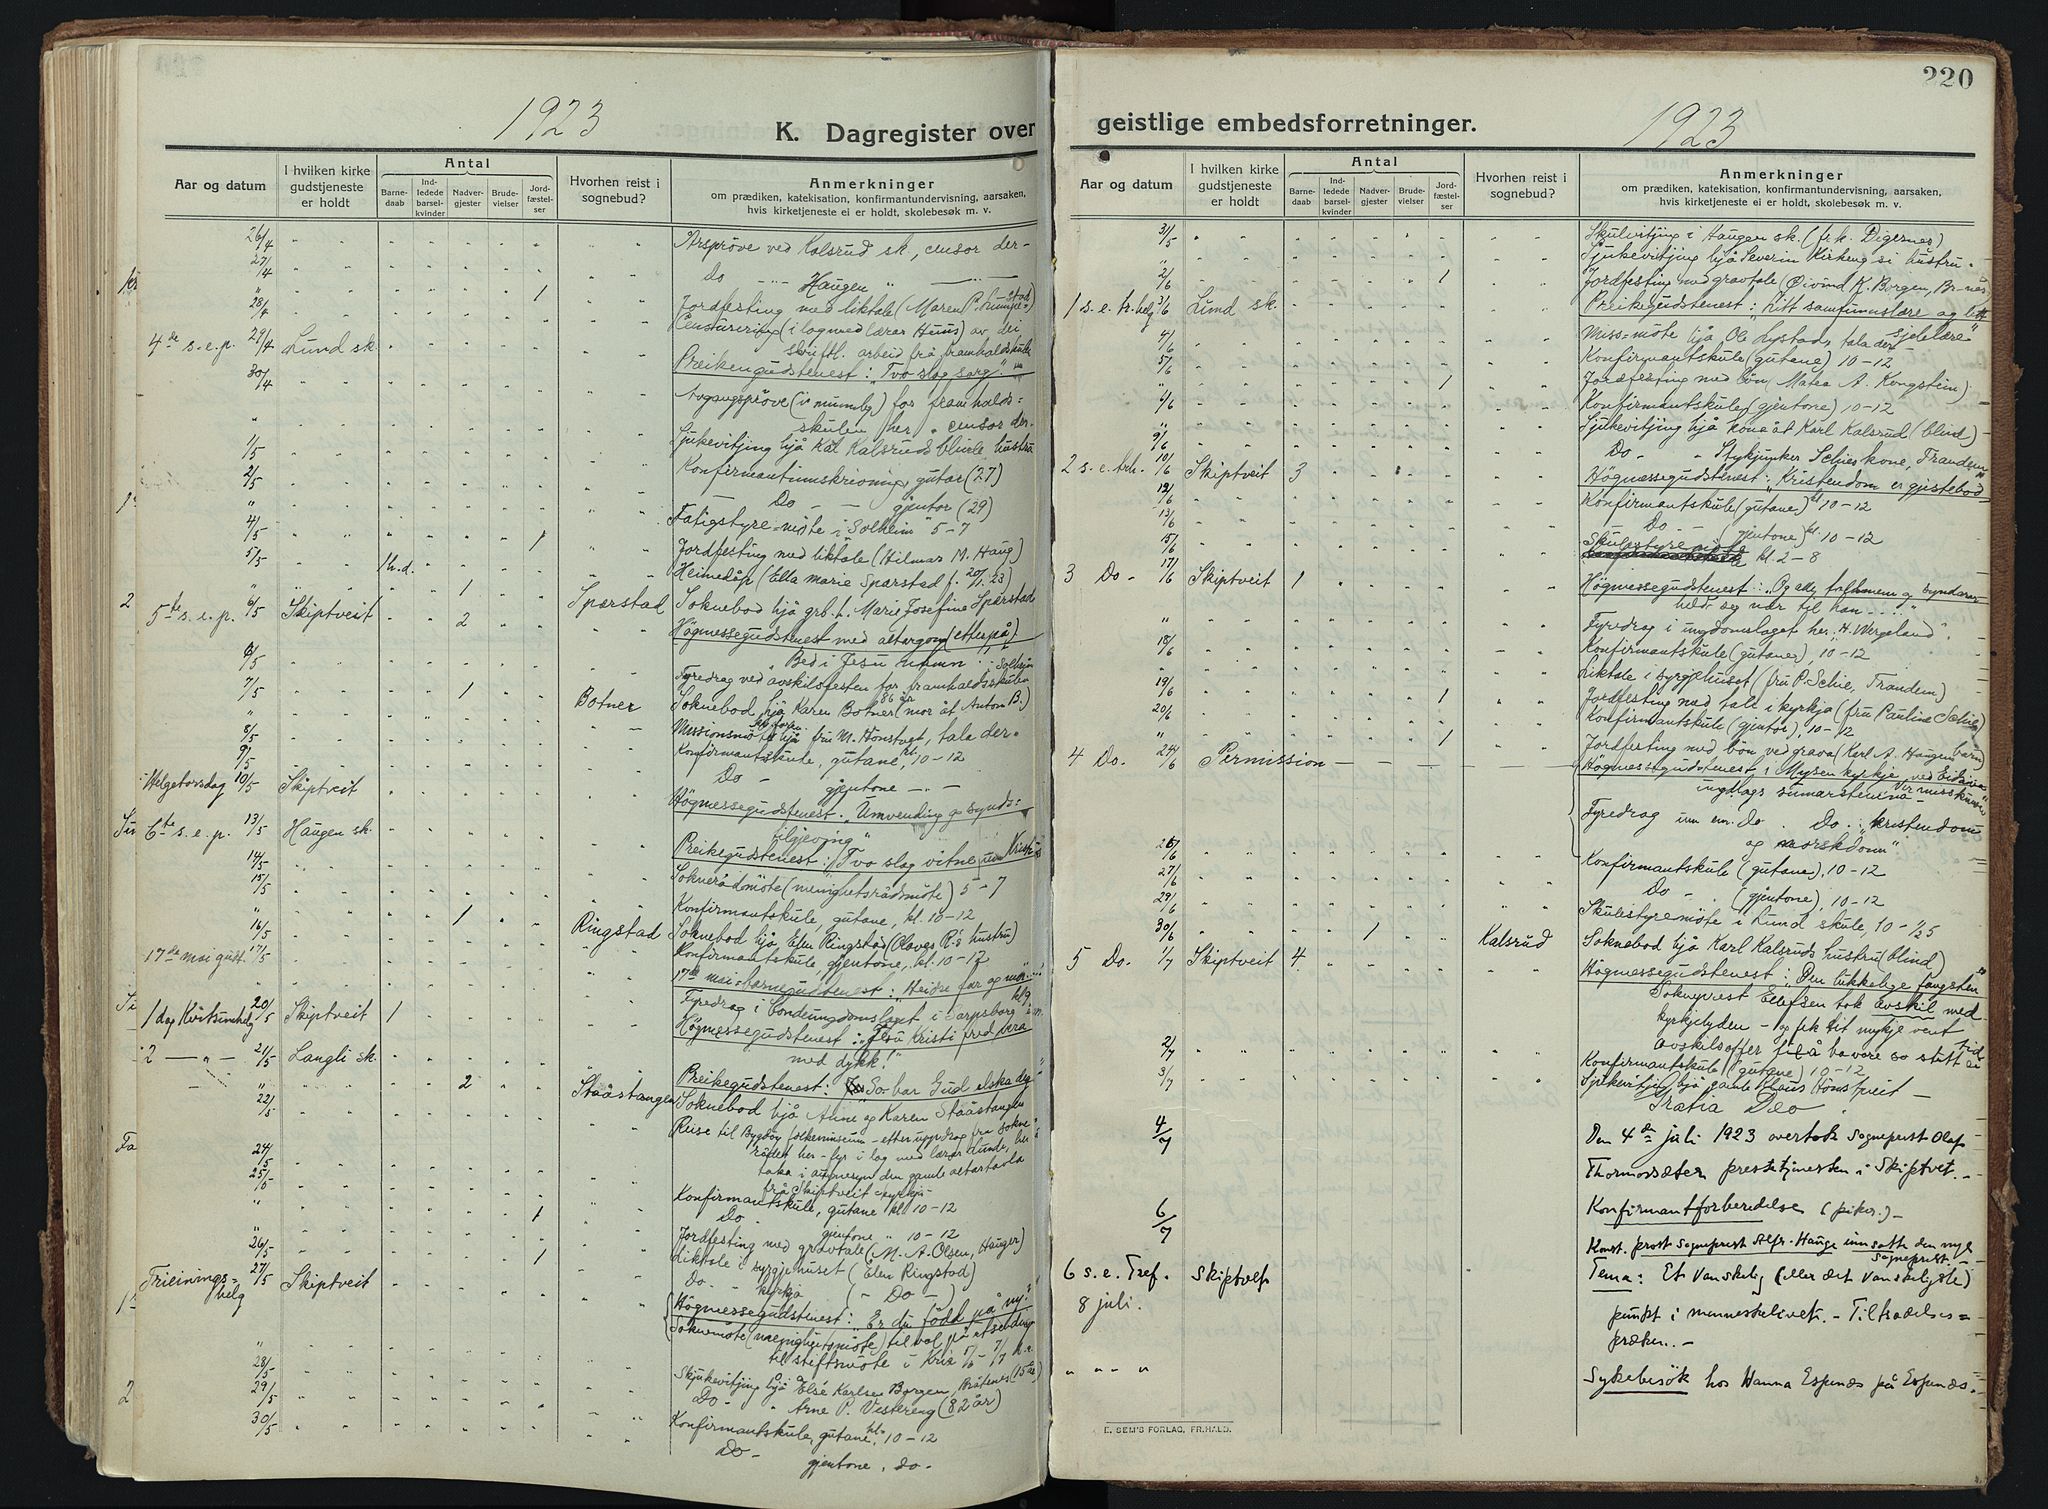 1923
K. Dagregister over
Aar og datum
I hvilken kirke gudstjeneste er holdt
Antal
Barnedaab
Indledede barselkvinder
Nadvergjester
Brudevielser
Jordfæstelser
Hvorhen reist i sognebud?
Anmerkninger
om prædiken, katekisation, konfirmantundervisning, aarsaken,
hvis kirketjeneste ei er holdt, skolebesøk m. v.
26/4 Årsprøve ved Kalsrud sk, censor der-
27/4 Do - Haugen " -
" 1 Jordfesting med liktale (Maren P.
28/4 Censurering (i lag med lærar Huus) av dei
skriftl. arbeid frå framhaldsskule
4de s. e. p. 29/4 Lund sk. Preikengudstenest: "Tvo slag sorg."
30/4 Avgangsprøve (i munnleg) for framhalds=
skulen her, censor der.
" Sjukevitjing hjå Kal Kalsruds blinde hustru
1/5 Konfirmantinnskrivning, gutar (27)
2/5 Do - gjentor (29)
" Fatigstyre-møte i Solheim 5-7
4/5 1 Jordfesting med liktale (Hilmar M. Haug)
5/5 1 h.d. Heimedåp (Ella Marie Sparstad f. 20/1.23)
" 1 Sparstad Soknebod hjå grb. f. Marie Josefine Sparstad
5te s. e. p. 6/5 Skiptveit 2 Høgmessegudstenest med altergong (etterpå)
"Bed i Jesu namn
6/5 Fyredrag ved avskilsfesten for framhaldsskulen Solheim
7/5 1 Botner Soknebod hjå Karen Botner 86 år (mor åt Anton B.)
" Missionsmøte hjå fru M. Hønstvet, tala der.
8/5 Konfirmantskule, gutane, kl. 10-12
9/5 Do - gjentone -
Helgetorsdag 10/5 Skiptveit Høgmessegudstenest. "Umvending og synds=
tilgjevning"
6te s. e. p. 13/5 Haugen sk. Preikegudstenest: "Tvo slag vitne um Krist
14/5 Soknerådsmøte (menighetsrådsmøte) 5-7
15/5 Konfirmantskule, gutane, kl. 10-12
" 1 Ringstad Soknebod hjå Elen Ringstad (Olaves R's hustru)
16/5 Konfirmantskule, gjentone, kl. 10-12
17de mai gudt. 17/5 17de mai-barnegudstenest: "Heidre far og mor
Fyredrag i Bondeungdomslaget i Sarpsborg
1 dag Kvitsunhelg 20/5 Skiptveit 1 Høgmessegudstenest: "Jesu Kristi fred vera
med dykk!"
2 - " - 21/5 Langli sk. Preikegudstenest: So har Gud elska deg
" 2 Stååstangen Soknebod hjå Anne og Karen Stååstangen
22/5 Reise til Bygdøy folkemuseum - etter uppdrag fra sokne
rådet her - fyr i lag med lærar Lunde, her
taka i augnesyn den gamle altartavla
frå Skiptveit kyrkja-
24/5 Konfirmantskule, gutane kl. 10-12
25/5 Do. gjentone " 10-12
" 1 Jordfesting med gravtale (M. A. Olsen, Hauger)
26/5 Liktale i syrgjehuset (Elen Ringstad)
" 1 Do - kyrkja ( - Do - )
Trieinings=helg 27/5 Skiptveit Høgmessegudstenest: "Er du fødd på ny?
Soknemøte (menighetsmøte) til val på utsending
til stiftsmøte i Kria
" Skjukevitjing hjå Else Karlsen Borgen, Bråtenes (15 år)
28/5 Do - " Arne P. Vestereng (82 år)
29/5 Konfirmantskule, gutane, kl. 10-12
30/5 Do - gjentone, do-
220
geistlige embedsforretninger.
1923
Aar og datum
I hvilken kirke gudstjeneste er holdt
Antal
Barnedaab
Indledede barselkvinder
Nadvergjester
Brudevielser
Jordfæstelser
Hvorhen reist i sognebud?
Anmerkninger
om prædiken, katekisation, konfirmantundervisning, aarsaken,
hvis kirketjeneste ei er holdt, skolebesøk m. v.
31/5 Skulevitjing i Haugen sk. (frk. Digernes)
" Sjukevitjing hjå Severin Kirkeng si hustru.
2/6 1 Jordfesting med gravtale (Øivind K. Borgen, Br-nes
1 s. e. tr. helg 3/6 Lund sk. Preikegudstenest: "Litt samfunnslære og litt
sjelelære"
4/6 Miss-møte hjå Ole Lystad, tala der
5/6 Konfirmantskule (gutane) 10-12
" 1 Jordfesting med bøn (Matea A. Kongstein)
6/6 Konfirmantskule (gjentone) 10-12
" Sjukevitjing hjå kona åt Karl Kalsrud (blind)
9/6 Do - Stykjunker Schies kone, Trandem
2 s. e. trh. 10/6 Skiptveit 3 Høgmessegudstenest: "Kristendom er gjestebod"
12/6 Konfirmantskule (gutane) kl. 10-12
13/6 Do - gjentone) kl. 10-12
15/6 Skulestyremøte kl. 2-8
3 Do - 17/6 Skiptveit 1 Høgmessegudstenest: "Og alle tollmenn og syndarar
heldt seg nær til han ...."
" Fyredrag i ungdomslaget her, "H. Wergeland".
18/6 Konfirmantskule (gutane), 10-12
" Liktale i syrgjehuset (fru P. Schie, Trandem)
19/6 1 Jordfesting med tale i kyrkja (fru Pauline Schie)
20/6 Konfirmantskule (gjentor), 10-12
" 1 Jordfesting med bøn ved grava (Karl A. Haugens barn
4 Do. 24/6 Permission Høgmessegudstenest i Mysen kyrkje ved Eidsiva
ungdlags sumarstemna
Fyredrag inn em. do. Do.: "Kristendom
og norskdom"
26/6 Konfirmantskule (gutane), 10-12
27/6 Do - (gjentone), 10-12
29/6 Skulestyremøte i Lund skule, 10-
30/6 1 Kalsrud Soknebod hjå Karl Kalsruds hustru (blind)
5 Do. 1/7 Skiptveit 4. Høgmessegudstenest: "Den lukkelige fangsten"
Sokneprest Ellefsen tok avskil med
kyrkjelyden - og fek eit mykje vent
avskilsoffer til å ha vore so stutt ei tid
2/7 Konfirmantskule (gutane) 10-12
3/7 Sjukevitjing hjå gamle Klaus Hønstveit -
Gratia Deo
4/7 Den 4de juli 1923 overtok sogneprest Olaf
Thormodsæter prestetjenesten i Skiptvet. -
6/7 Konfirmantforberedelse (piker.) -
Konst. prost sogneprest Alfr. Hauge innsatte den nye sogneprest. -
6 s. e. Tref. 8 juli. Skiptvet Tema: Et vanskelig (eller det vanskeligste)
punkt i menneskelivet. - Tiltrædelses=
præken. -
" " " " Sykebesøk hos Hanna Espenæs på Espenæs.
E. SEM'S FORLAG, FR.HALD.